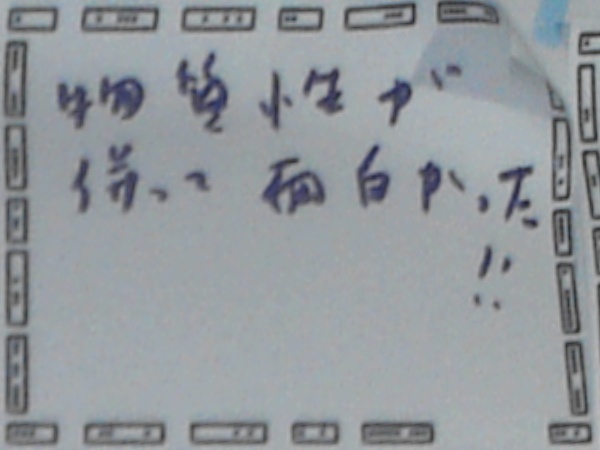 物質性が
併って面白かった
!!